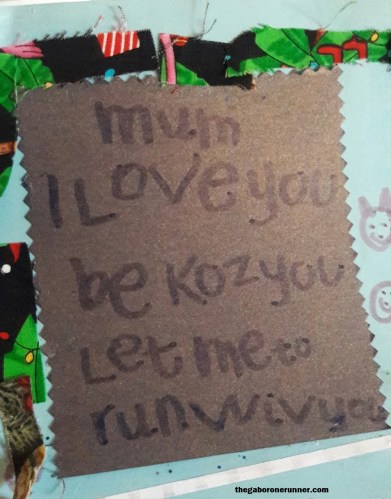 mum
I Love you
be Kozyou
Let me to
run wiv you
thegaboronerunner.com